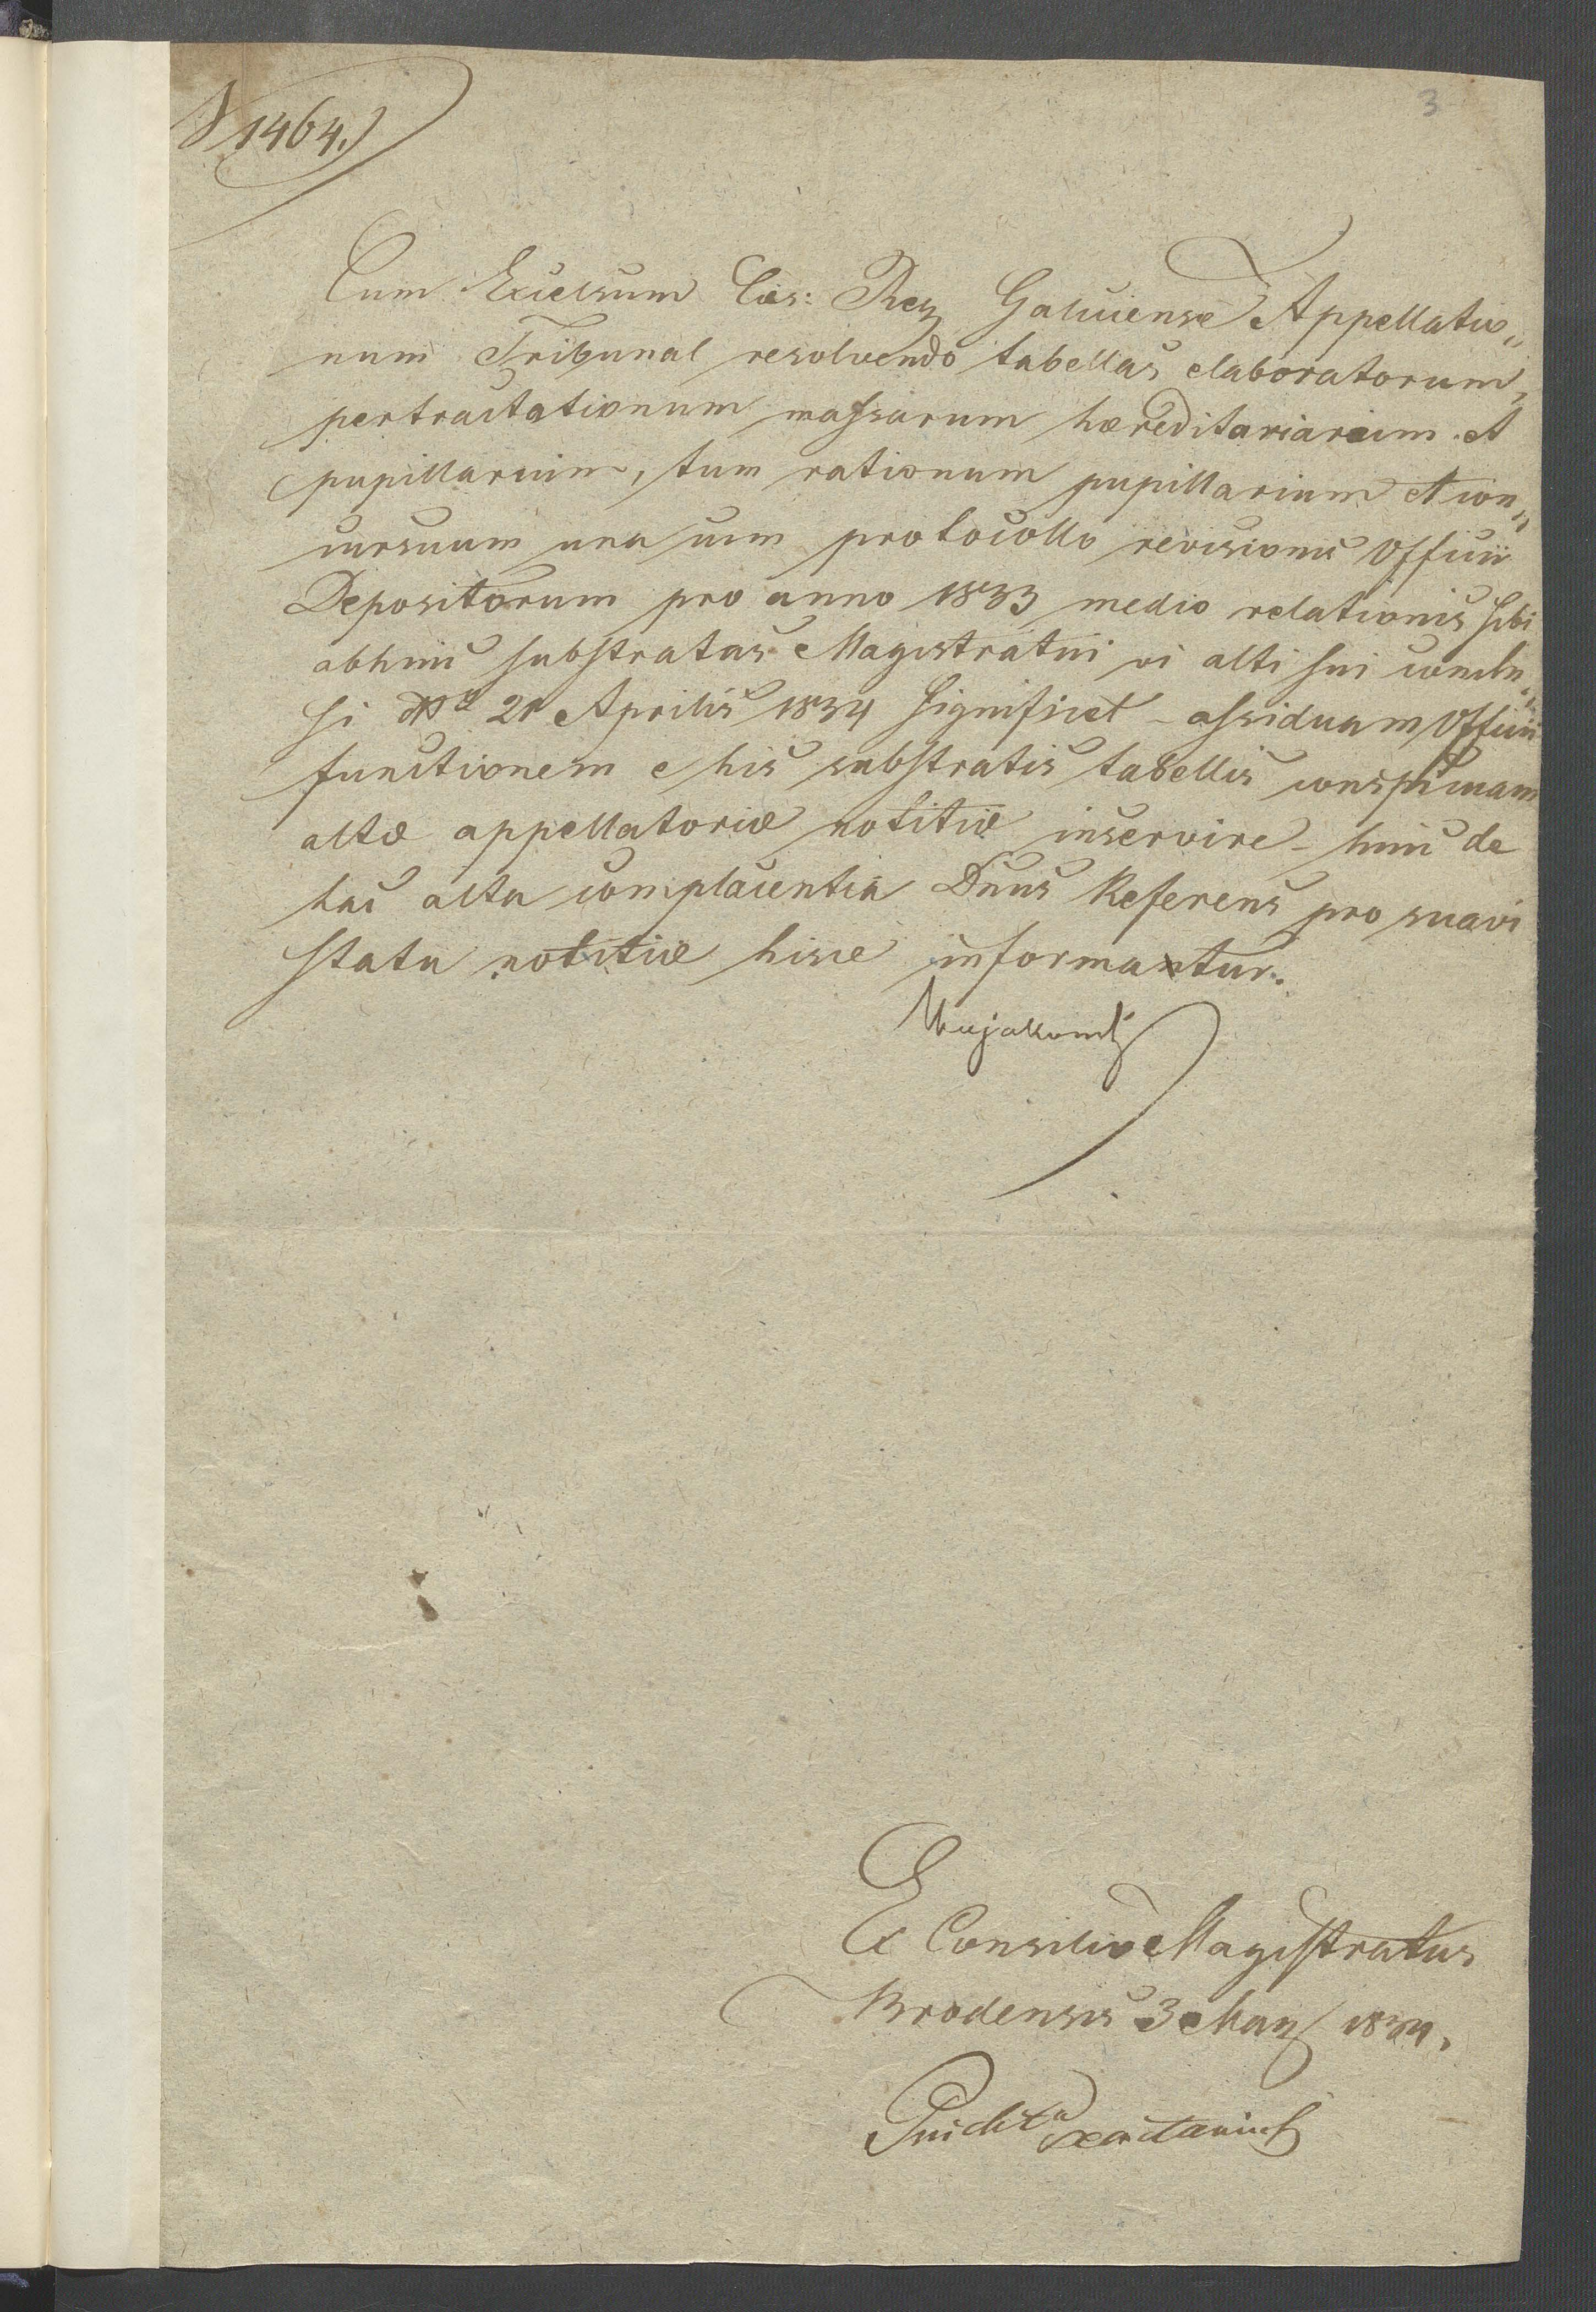 N 1464.
3
Cum Excelsum Cæs: Reg Galiciense Appellatio„
num Tribunal resolvendo tabellas elaboratorum,
pertractationum massarum hæreditariarum et
pupillarium, tum rationum pupillarium et con„
cursuum una cum protocollo revisionis Officii
Depositorum pro anno 1833 medio relationis sibi
abhinc substratas Magistratui vi alti sui conclu„
si 21 Aprilis 1834 significet – assiduam Officii
functionem e his substratis tabellis conspicuam
altæ appellatoriæ notitiæ inservire – hinc de
hac alta complacentia Dnus Referens pro suavi
statu notitiæ hisce informatur.
Ex Consilio Magistratus
Brodensis 3 May 1834.